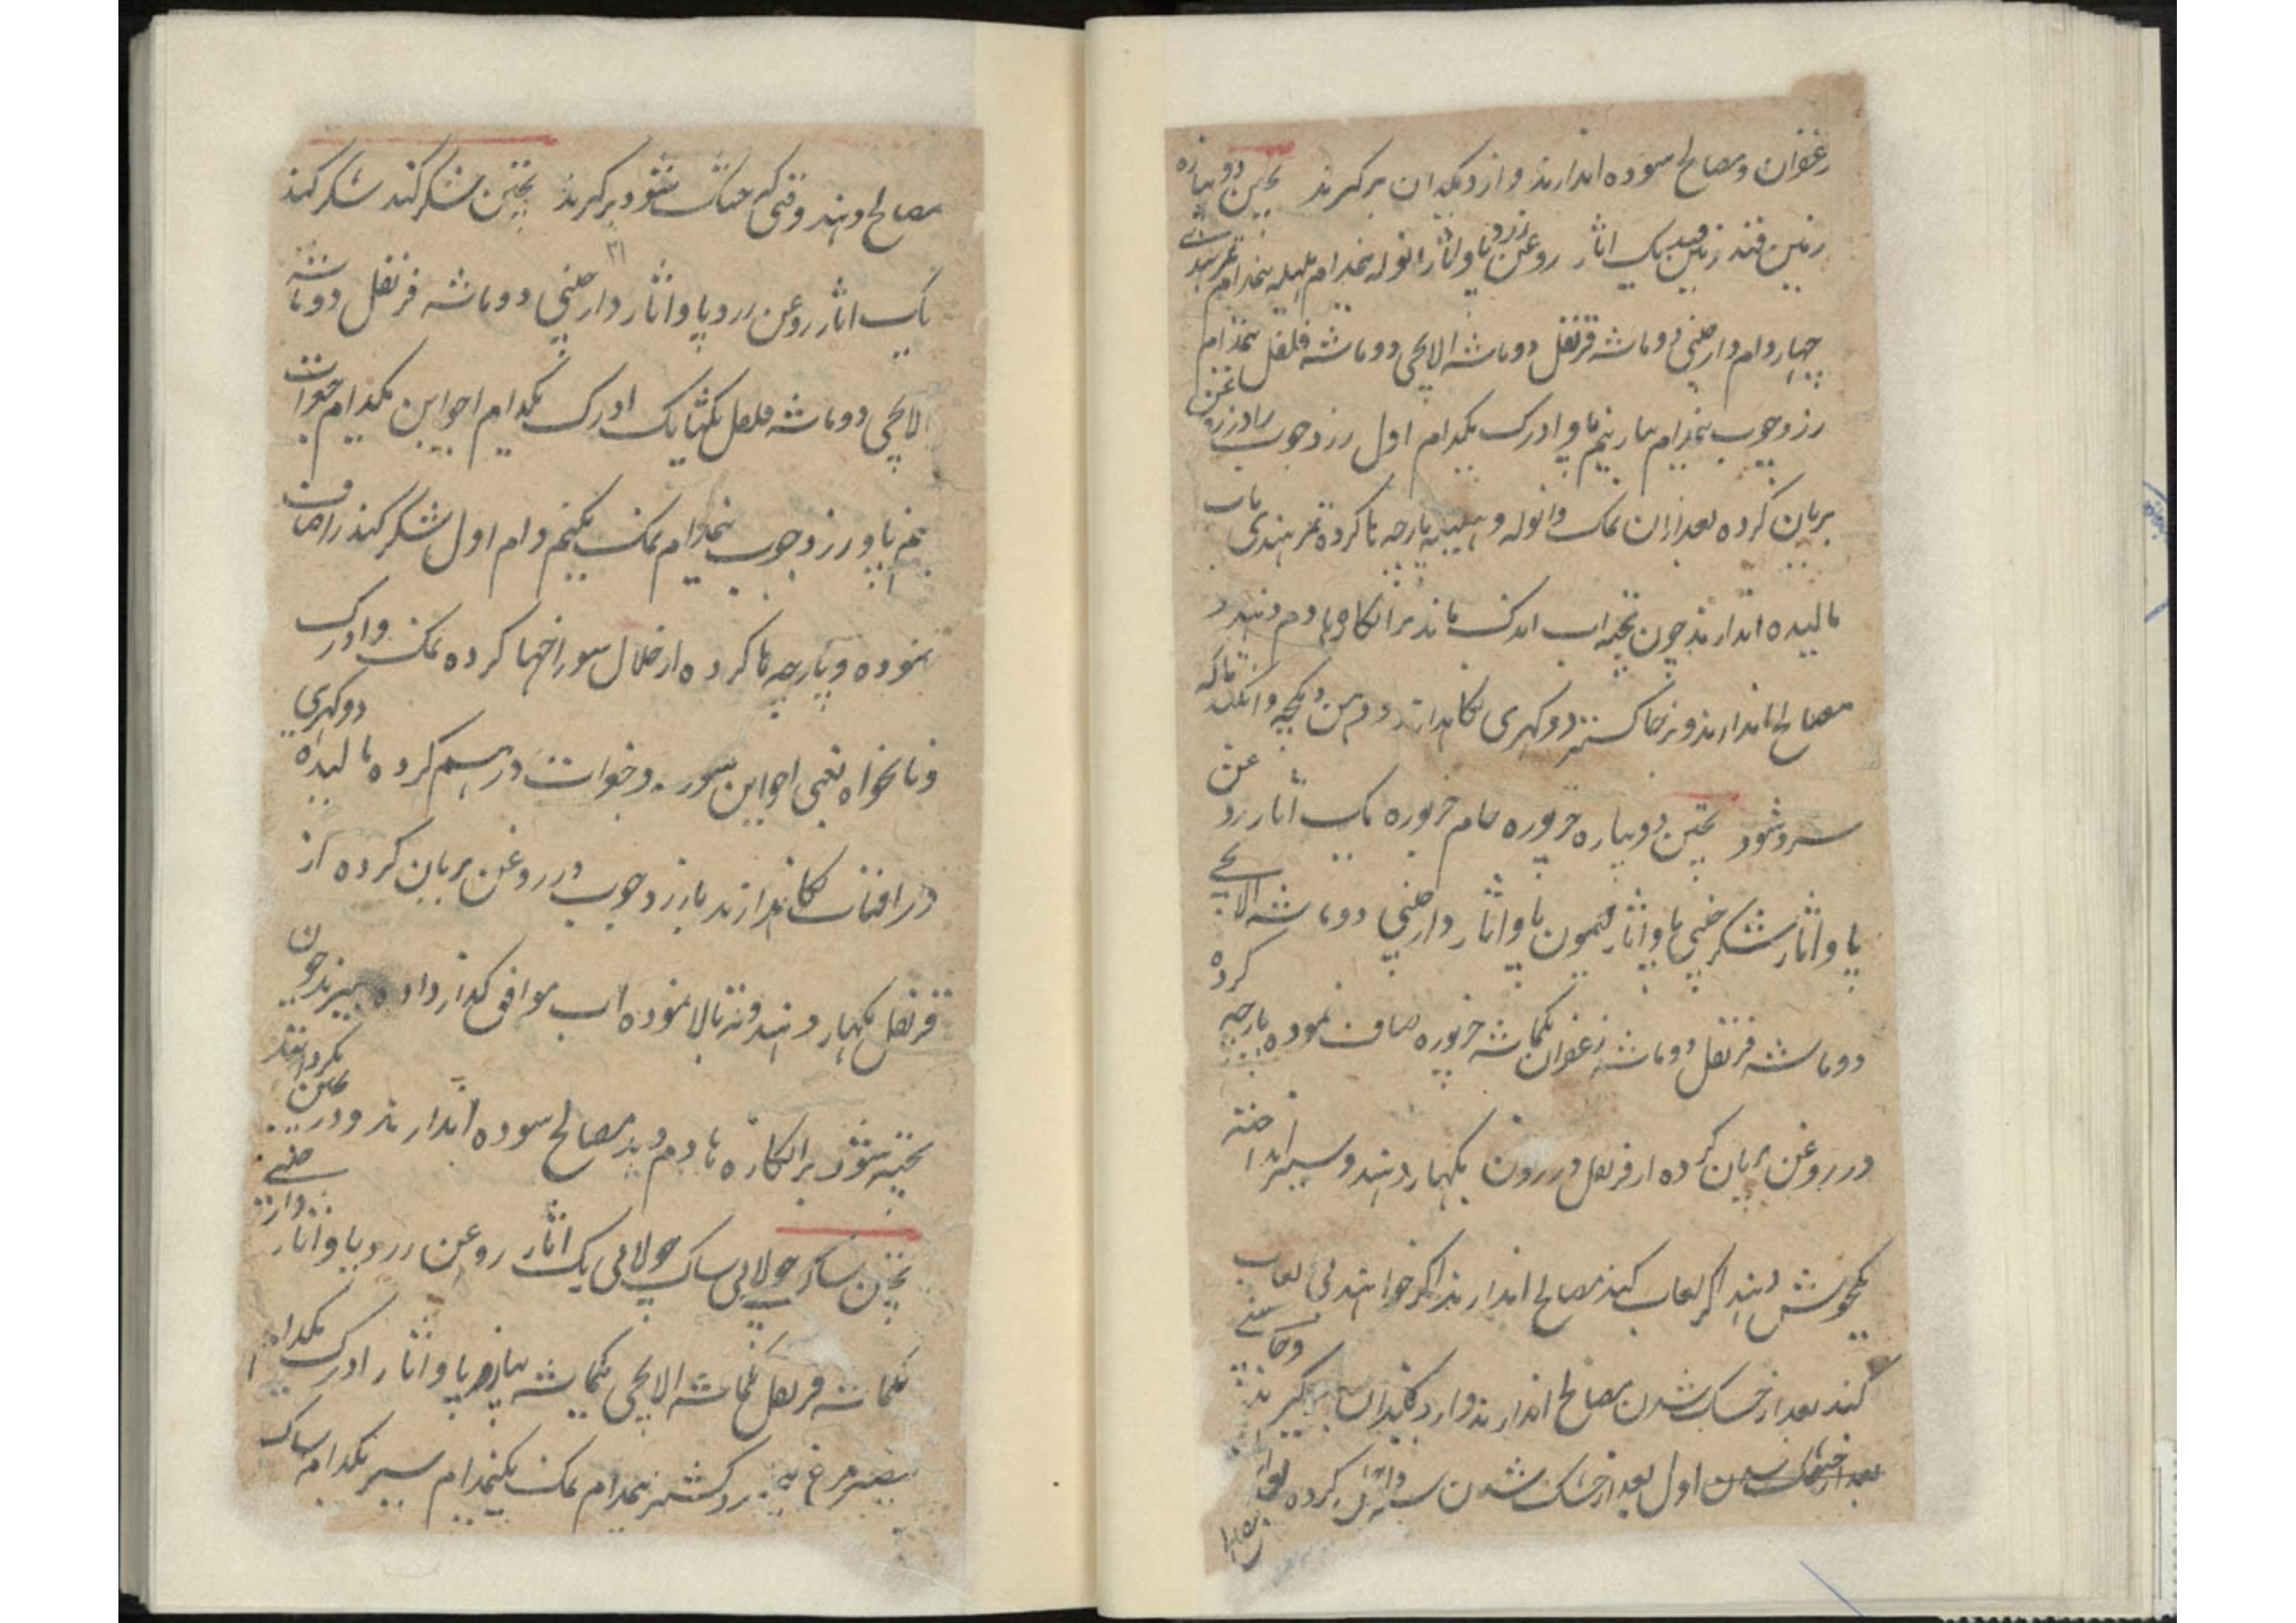 زعفران و مصالح سوده اندازند و از دیکدان برکیرند پختن دوپیازه
زمین قند زمین قند یک اثار روغن زرد پاو اثار انوله نیمدام هلیله نیمدام تمر هندی
چهار دام دارچینی دو ماشه قرنفل دو ماشه الایچی دو ماشه فلفل نیمدام
زردچوب نیمدام پیاز نیم پاو ادرک یکدام اول زردچوب را در روغن
بریان کرده بعد ازان نمک و انوله و هلیله پارچه ها کرده تمر هندی باب
مالیده اندازند چون پخته اب اندک ماند بر انکارها دم دهند و
مصالح اندازند و بر خاکستر دو کهری نکاهدارند دم پخته تا که
سرد شود پختن دوپیازه خرپوزه خام خرپوزه یک اثار روغن
پاو اثار شکر چینی پاو اثار لیمون پاو اثار دارچینی دو ماشه الایچی
دو ماشه قرنفل دو ماشه زعفران یکماشه خرپوزه صاف نموده پارچه کرده
در روغن بریان کرده از قرنفل در روغن بکهار دهند و شیر انداخته
یکجوش دهند اکر لعاب کنند مصالح اندازند اکر خواهند بی لعاب
کنند بعد از خشک شدن مصالح اندازند و از دیکدان برکیرند و چاشنی
بعد از خشک شدن اول بعد از خشک شدن کرده
مصالح دهند وقتی که خشک شود برکیرند پختن شکرکند شکرکند
۳۱
یک اثار روغن زرد پاو اثار دارچینی دو ماشه قرنفل دو ماشه
الایچی دو ماشه فلفل یکتا یک ادرک یکدام اجواین یکدام جغرات
نیم پاو زردچوب نیمدام نمک یکنیم دام اول شکرکند را صاف
نموده و پارچه ها کرده از خلال سوراخها کرده نمک و ادرک
و نانخواه یعنی اجواین و جغرات درهم کرده مالیده دو کهری
در افتاب نکاهدارند باز زردچوب در روغن بریان کرده از
قرنفل بکهار دهند و ته بالا نموده اب موافق کداز داده بپزند چون
پخته شود بر انکاره ها دم دهند مصالح سوده اندازند و در
پختن ساک چولائی ساک چولائی یک اثار روغن زرد پاو اثار دارچینی
یکماشه قرنفل یکماشه الایچی یکماشه پیاز پاو اثار ادرک یکدام
بیضه مرغ کشنیز نیمدام نمک یکنیمدام سیر یکدام ساک